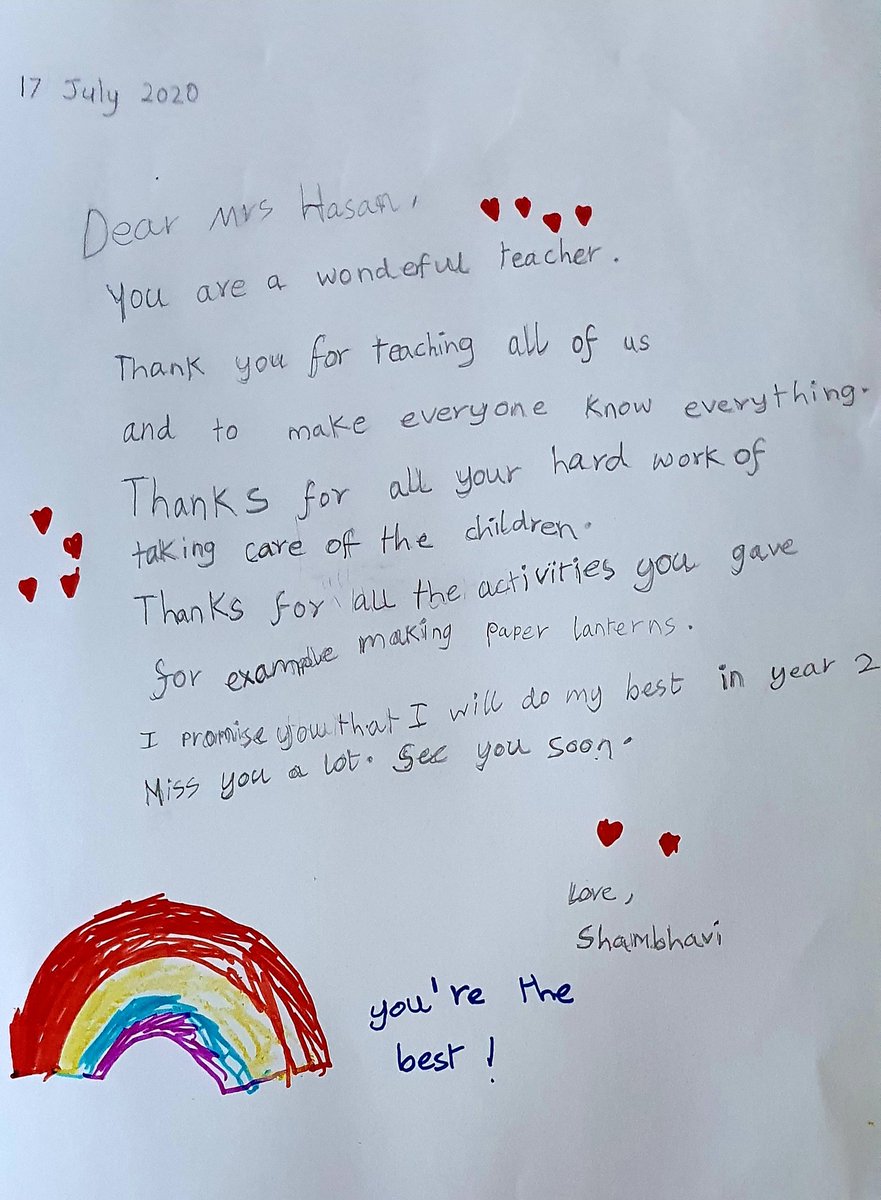 17 July 2020
Dear Mrs Hasan,
You are a wondeful teacher.
Thank you for teaching all of us
and to make everyone know everything.
Thanks for all your hard work of
taking care of the children.
Thanks for all the activities you gave
for example making paper lanterns.
I promise you that I will do my best in year 2
Miss you a lot. See you soon.
Love,
Shambhavi
you're the
best!